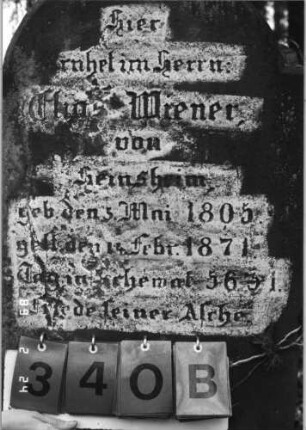 Hier
ruhet im Herrn:
Wiener,
von
Heinsheim,
geb den 3. Mai 1805
gest. den Febr. 1871
5631.
Friede seiner Asche.
340B